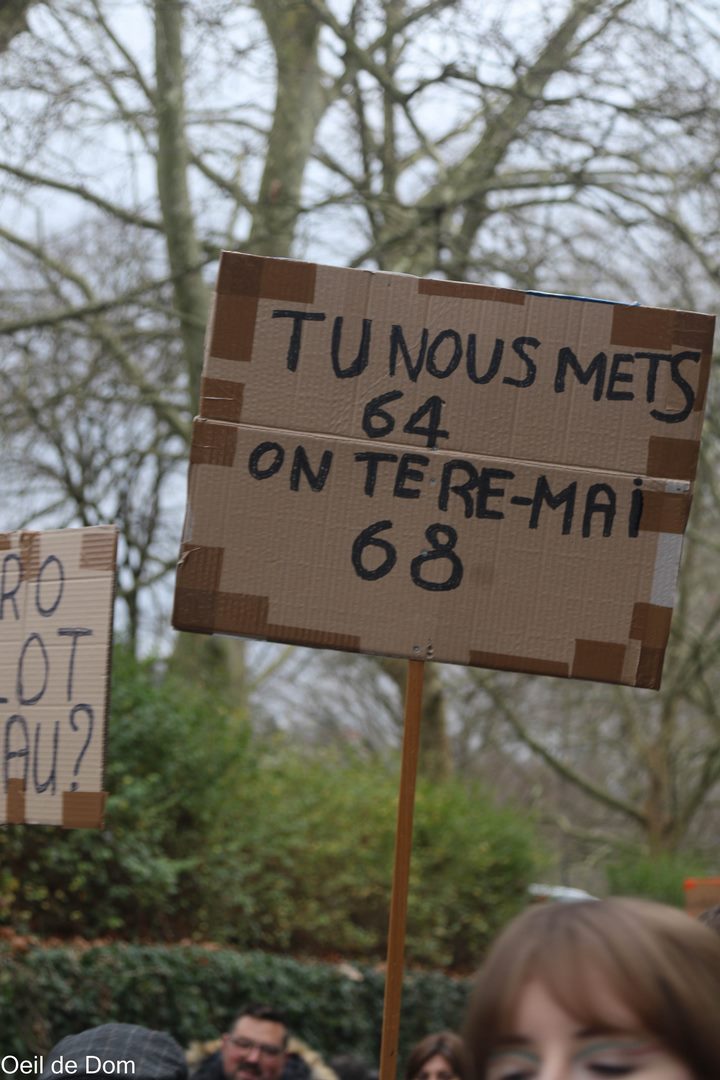 TU NOUS METS
64
ON TE RE-MAi
68
RO
LOT
AU?
Oeil de Dom